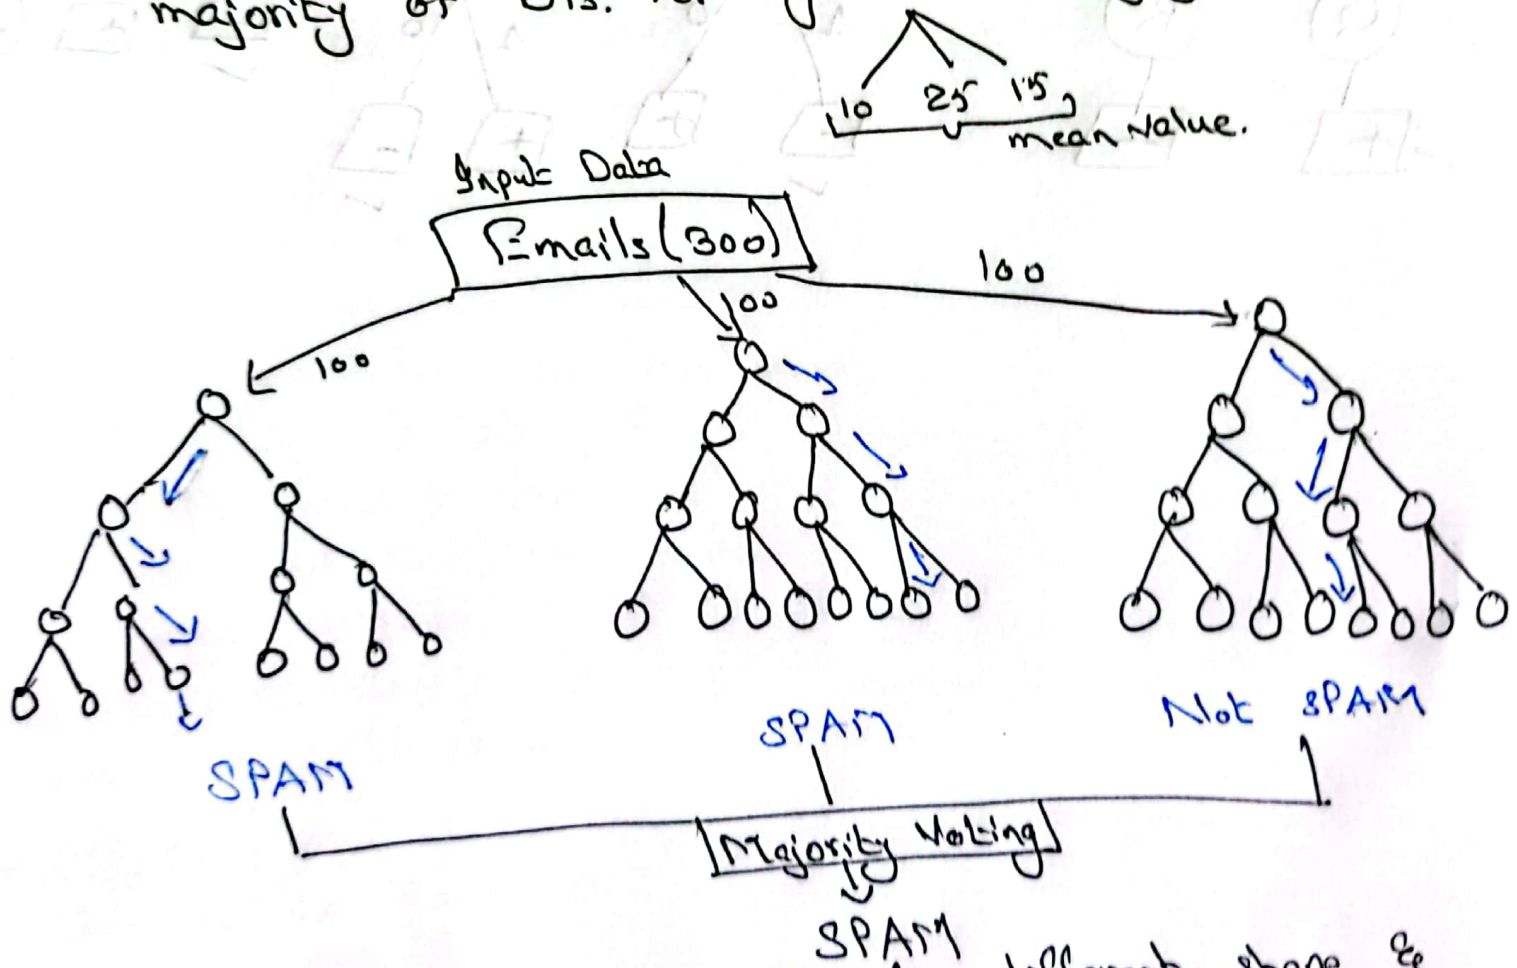 majority of
10 25 15
mean value.
Input Data
Emails (300)
100
100
100
SPAM
SPAM
Not SPAM
Majority Voting
SPAM
different shape &